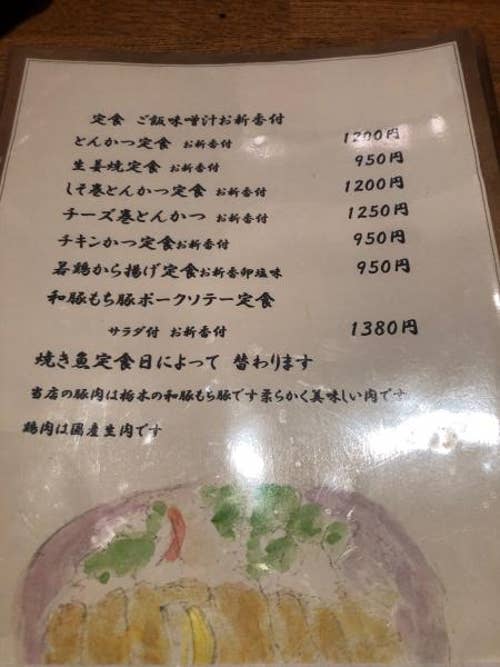 定食 ご飯味噌汁お新香付
とんかつ定食 お新香付 1200円
生姜焼定食 お新香付 950円
しそ巻とんかつ定食 お新香付 1200円
チーズ巻とんかつ お新香付 1250円
チキンかつ定食お新香付 950円
若鶏から揚げ定食お新香卸塩味 950円
和豚もち豚ポークソテー定食
サラダ付 お新香付 1380円
焼き魚定食日によって 替わります
当店の豚肉は栃木の和豚もち豚です柔らかく美味しい肉です
鶏肉は国産生肉です